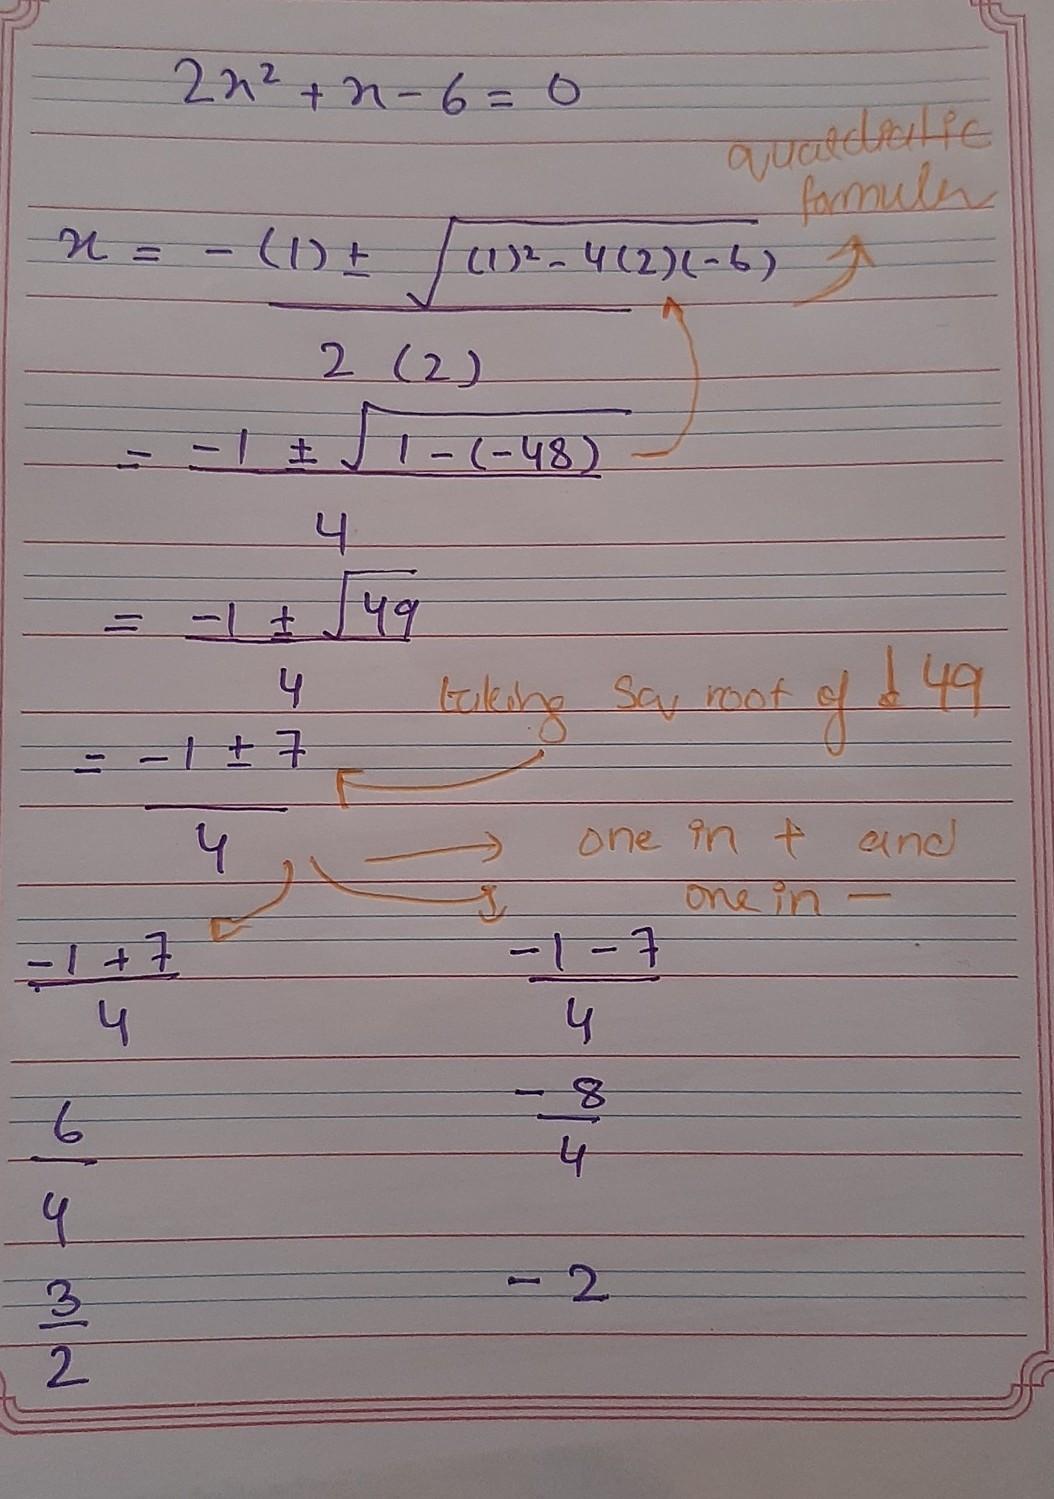 2x² + x - 6 = 0
quadratic
formula
x = -(1) ± √(1)² - 4(2)(-6)
2 (2)
= -1 ± √1 - (-48)
4
= -1 ± √49
4
taking Sq root of 49
= -1 ± 7
4
one in + and
one in -
-1 + 7
4
-1 - 7
4
6
4
-8
4
3
2
-2